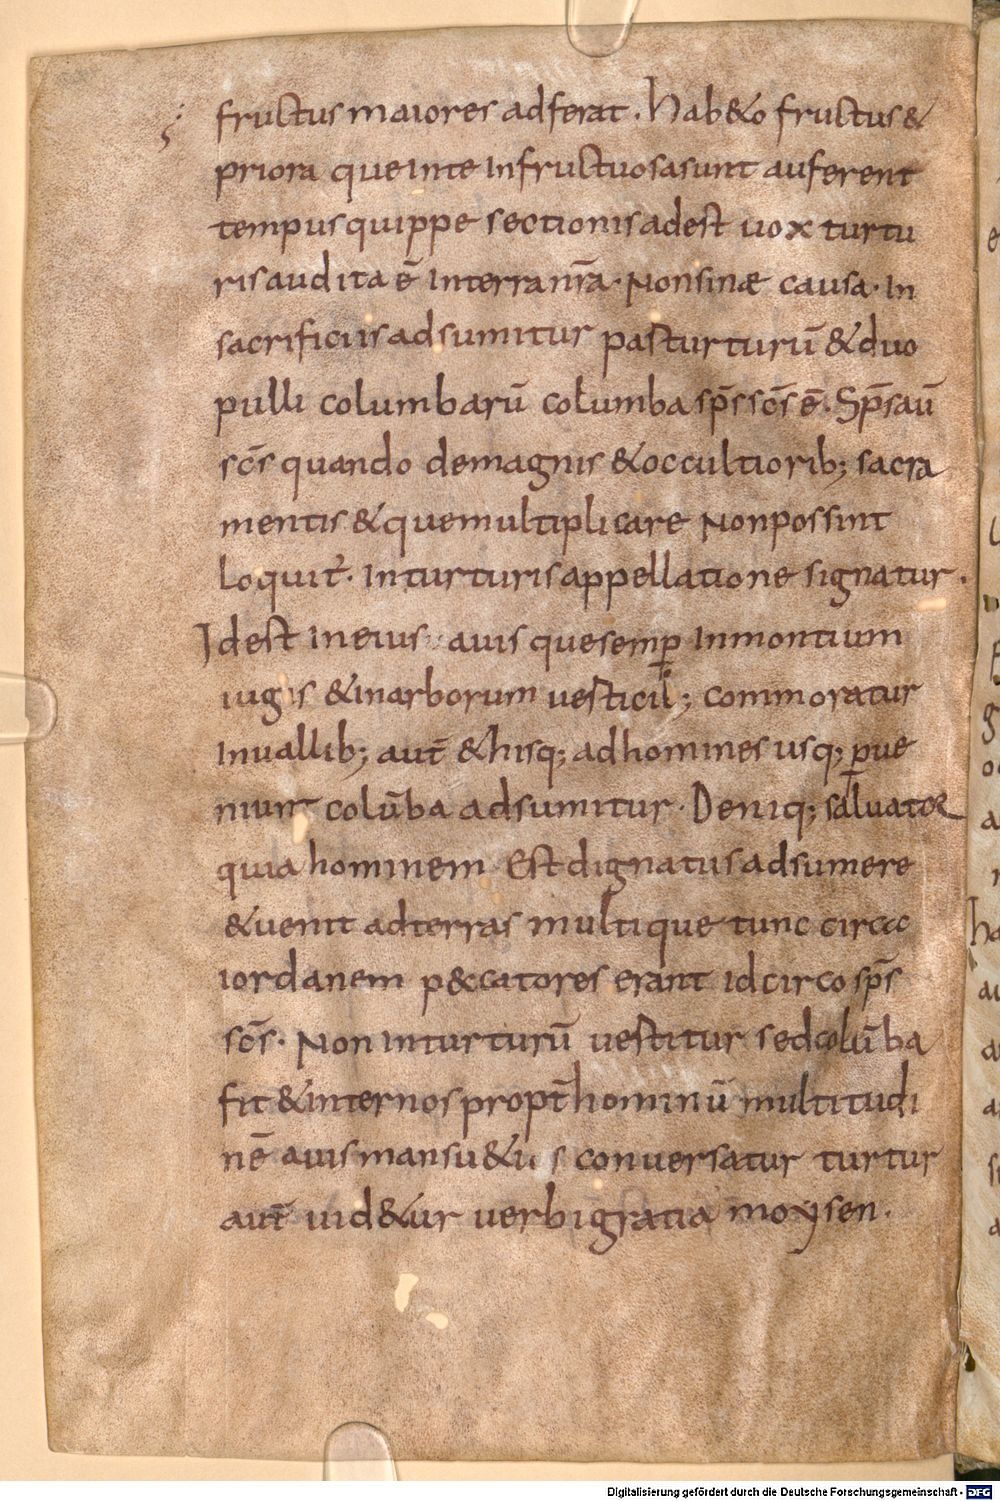 fructus maiores adferat. hab&o fructus &
priora que inte Infructuosa sunt auferent
tempus quippe sectionis adest uox turtu
ris audita ē Interra nr̄a. Non sinæ causa. In
sacrificiis adsumitur pasturturū & duo
pulli columbarū columba sp̄s sc̄s ē. Sp̄s aū
sc̄s quando demagnis & occultiorib; sacra
mentis & quemultiplicare Non possint
Loquit̄. In turturis appellatione signatur.
Idest In eius auis que semp̱ In montium
iugis & inarborum uesticil; commoratur
Inuallib; aut̄ & hisq; ad homines usq; p̱ue
niunt colūba adsumitur. Deniq; saluator
quia hominem Est dignatus adsumere
& uenit adterras multique tunc circa
iordanem p&catores erant idcirco sp̄s
sc̄s. Non inturturū uestitur sed colūba
fit & internos propt̄ hominū multitudi
nē auis mansu&us conuersatur turtur
aut̄ uid&ur uerbi gratia moysen.
Digitalisierung gefördert durch die Deutsche Forschungsgemeinschaft - DFG